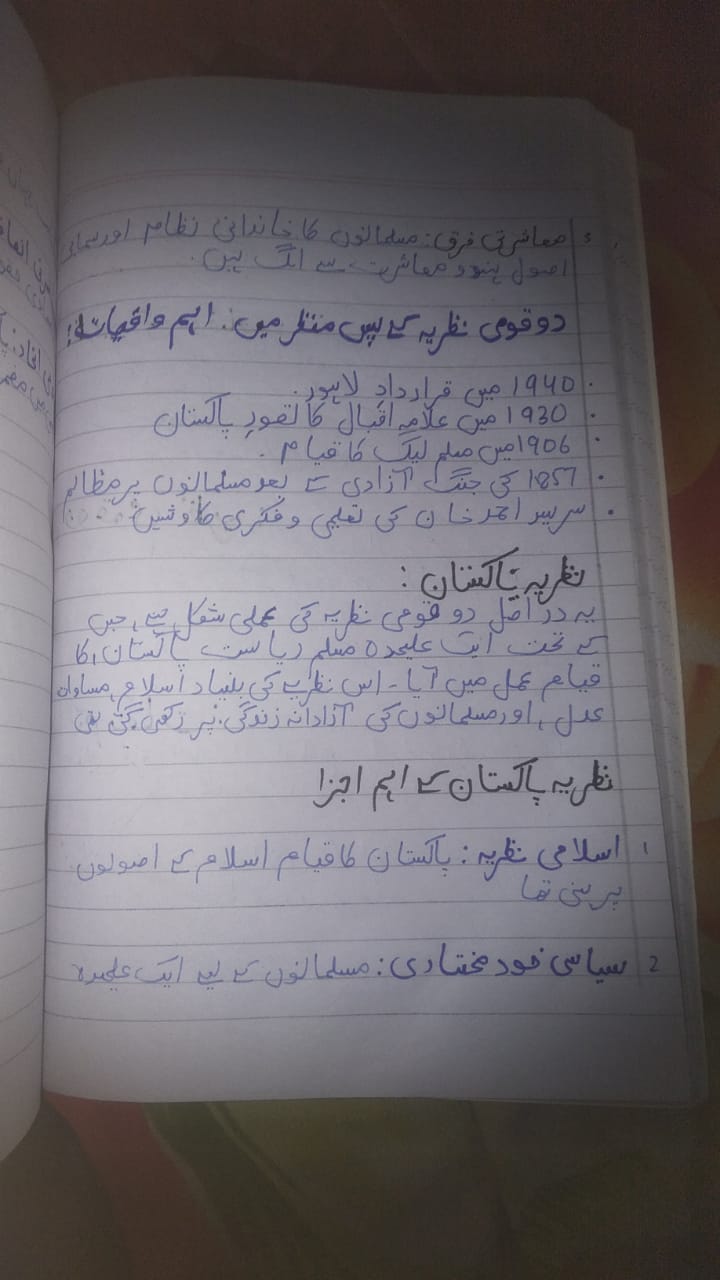 3 معاشرتی فرق: مسلمانوں کا خاندانی نظام اور سماجی
اصول ہندو معاشرت سے الگ ہیں.
دو قومی نظریہ کے پس منظر میں. اہم واقعات:
. 1940 میں قرارداد لاہور.
. 1930 میں علامہ اقبال کا تصور پاکستان
. 1906 میں مسلم لیگ کا قیام.
. 1857 کی جنگ آزادی کے بعد مسلمانوں پر مظالم
. سرسید احمد خان کی تعلیمی و فکری کاوشیں
نظریہ پاکستان:
یہ در اصل دو قومی نظریہ کی عملی شکل ہے، جس
کے تحت ایک علیحدہ مسلم ریاست پاکستان، کا
قیام عمل میں آیا۔ اس نظریے کی بنیاد اسلام، مساوات
عدل، اور مسلمانوں کی آزادانہ زندگی پر رکھی گئی تھی
نظریہ پاکستان کے اہم اجزا
1 اسلامی نظریہ: پاکستان کا قیام اسلام کے اصولوں
پر مبنی تھا
2 سیاسی خود مختاری: مسلمانوں کے لیے ایک علیحدہ